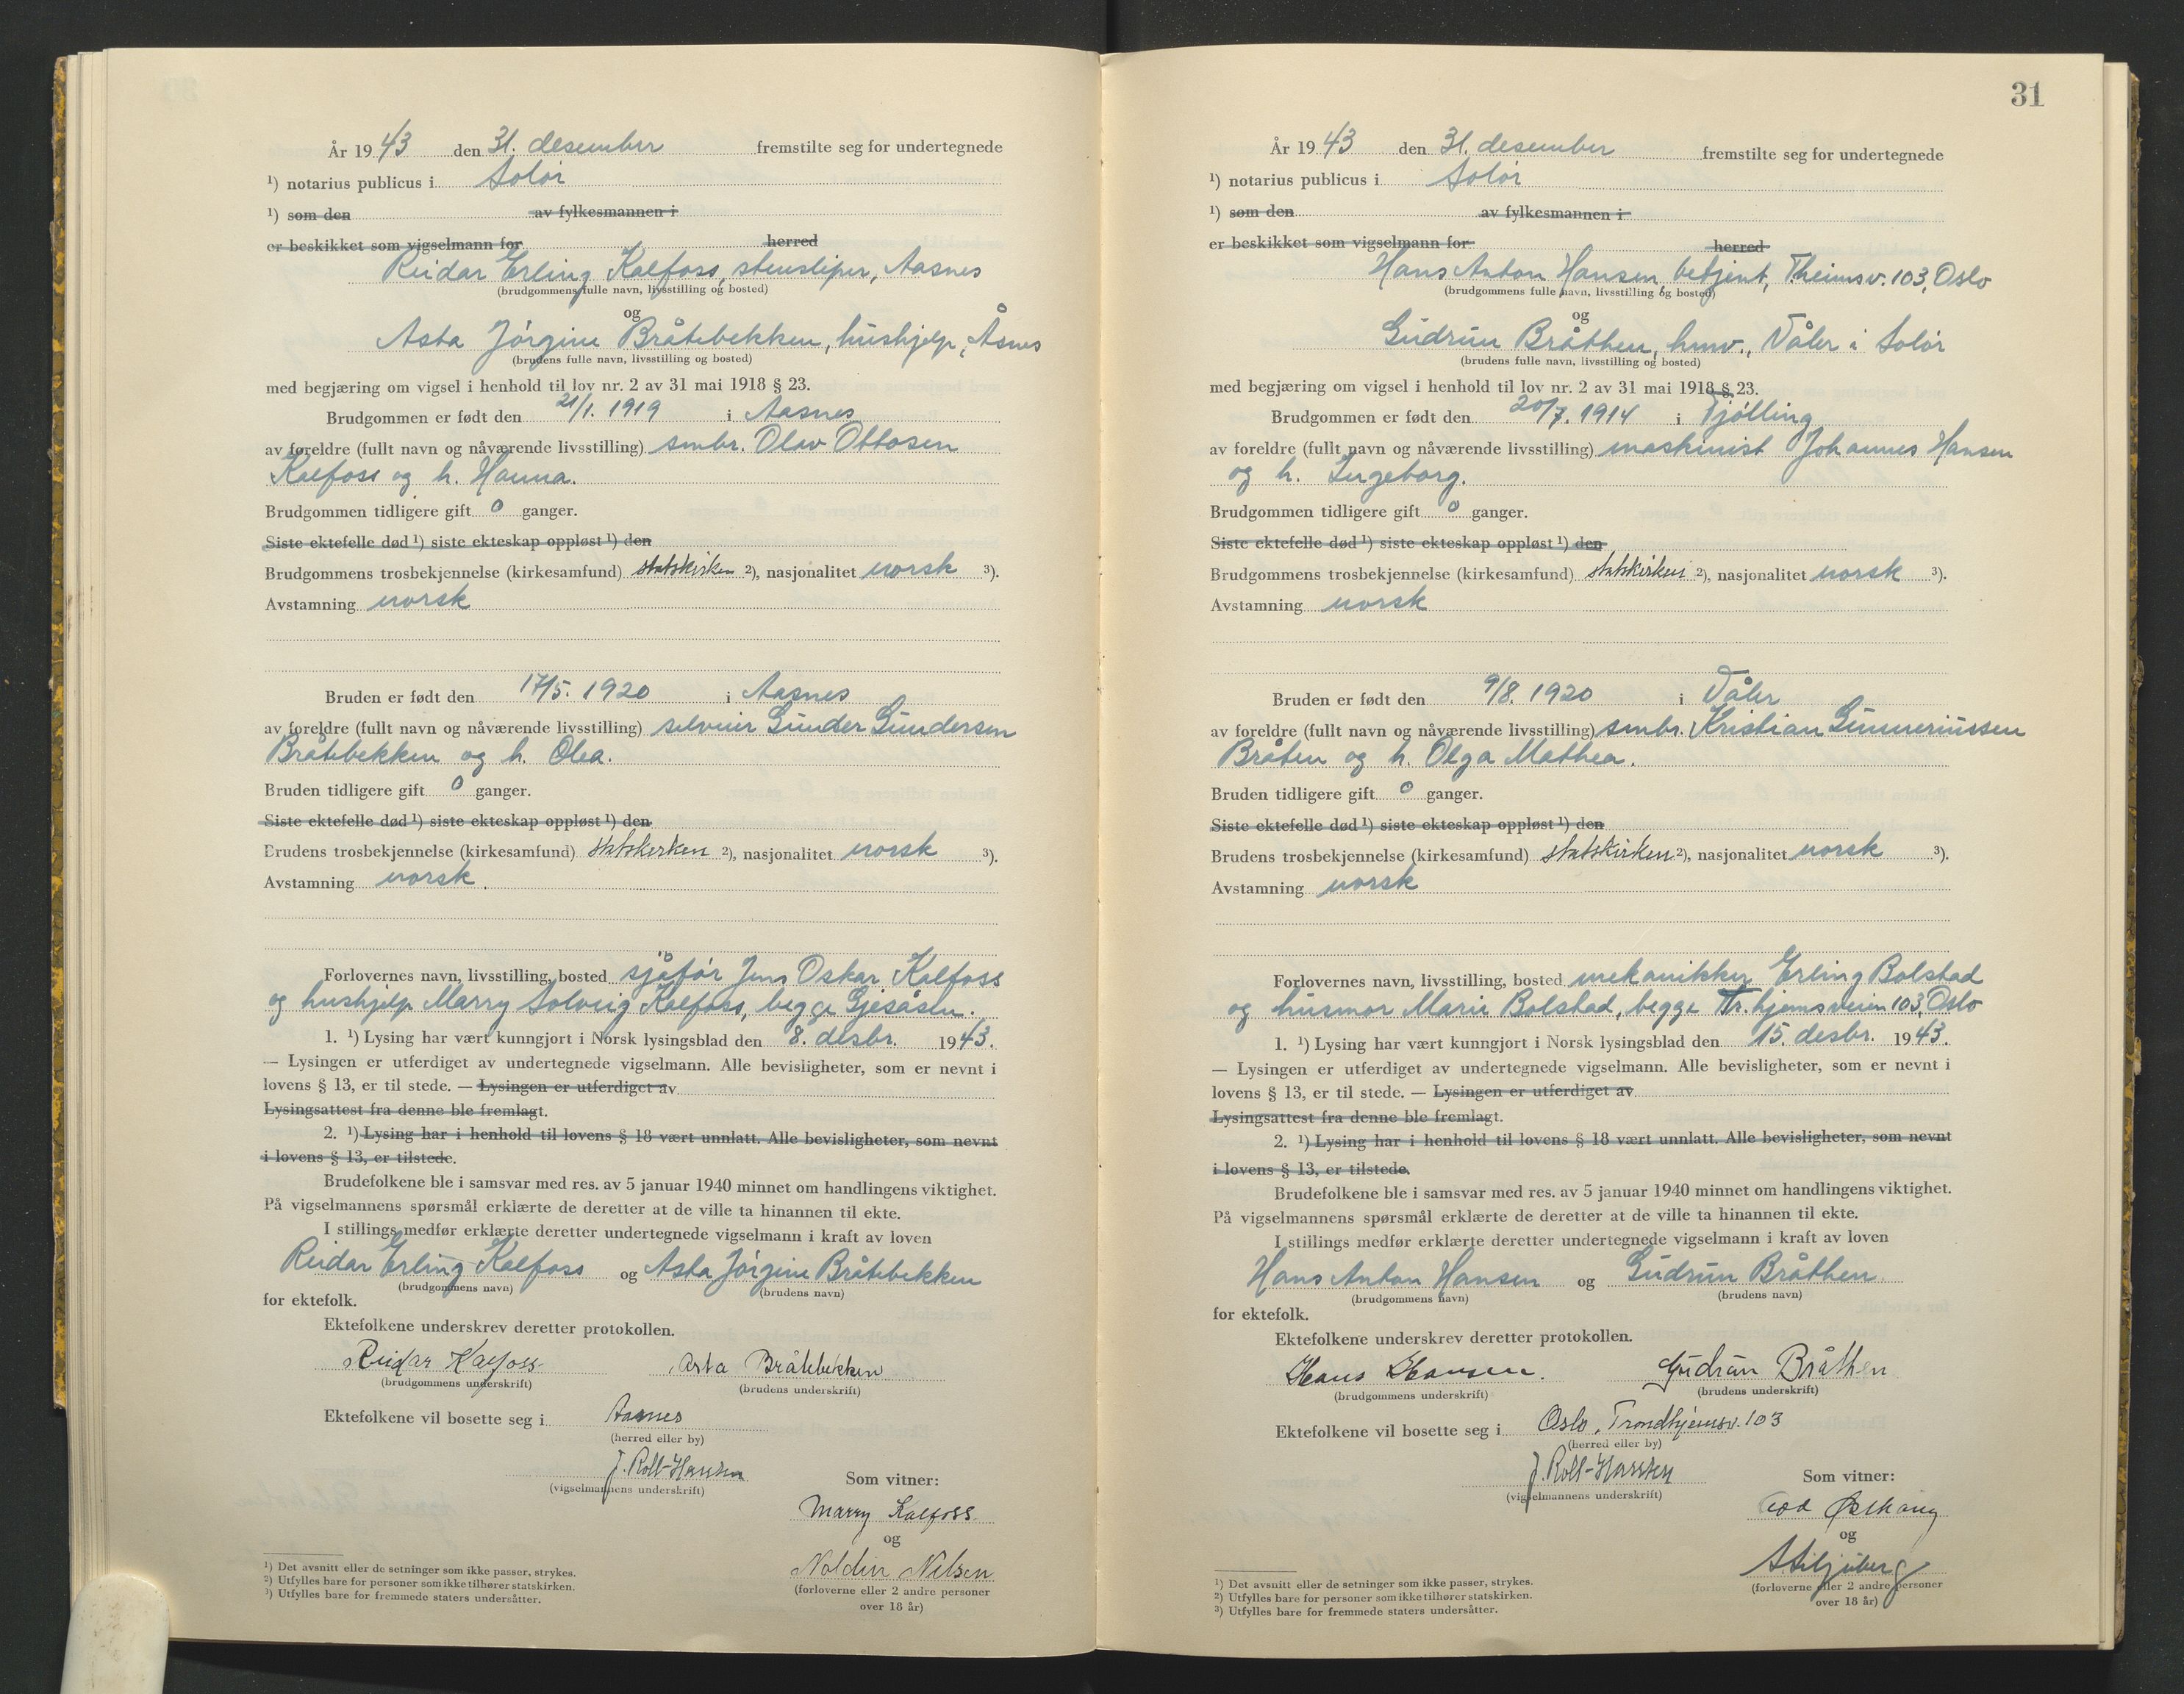 År 19 43 den 31. desember fremstilte seg for undertegnede
¹) notarius publicus i Solør
¹) som den av fylkesmannen i
er beskikket som vigselmann for herred
Reidar Erling Kalfoss, stensliper, Aasnes
(brudgommens fulle navn, livsstilling og bosted)
og
Asta Jørgine Bråtebekken, hushjelp, Åsnes
(brudens fulle navn, livsstilling og bosted)
med begjæring om vigsel i henhold til lov nr. 2 av 31 mai 1918 § 23.
Brudgommen er født den 21/1. 1919 i Aasnes
av foreldre (fullt navn og nåværende livsstilling) smbr. Olav Ottosen
Kalfoss og h. Hanna.
Brudgommen tidligere gift 0 ganger.
Siste ektefelle død ¹) siste ekteskap oppløst ¹) den
Brudgommens trosbekjennelse (kirkesamfund) statskirken ²), nasjonalitet norsk ³).
Avstamning norsk
Bruden er født den 17/5. 1920 i Aasnes
av foreldre (fullt navn og nåværende livsstilling) selveier Gunder Gundersen
Bråtebekken og h. Olea.
Bruden tidligere gift 0 ganger.
Siste ektefelle død ¹) siste ekteskap oppløst ¹) den
Brudens trosbekjennelse (kirkesamfund) statskirken ²), nasjonalitet norsk ³).
Avstamning norsk.
Forlovernes navn, livsstilling, bosted sjåfør Jens Oskar Kalfoss
og hushjelp Marry Solveig Kalfoss, begge Gjesåsen.
1. ¹) Lysing har vært kunngjort i Norsk lysingsblad den 8. desbr. 1943.
— Lysingen er utferdiget av undertegnede vigselmann. Alle bevisligheter, som er nevnt i
lovens § 13, er til stede. — Lysingen er utferdiget av
Lysingsattest fra denne ble fremlagt.
2. ¹) Lysing har i henhold til lovens § 18 vært unnlatt. Alle bevisligheter, som nevnt
i lovens § 13, er tilstede.
Brudefolkene ble i samsvar med res. av 5 januar 1940 minnet om handlingens viktighet.
På vigselmannens spørsmål erklærte de deretter at de ville ta hinannen til ekte.
I stillings medfør erklærte deretter undertegnede vigselmann i kraft av loven
Reidar Erling Kalfoss og Asta Jørgine Bråtebekken
(brudgommens navn) (brudens navn)
for ektefolk.
Ektefolkene underskrev deretter protokollen.
Reidar Kalfoss Asta Bråtebekken
(brudgommens underskrift) (brudens underskrift)
Ektefolkene vil bosette seg i Aasnes
(herred eller by)
J. Roll-Hansen
(vigselmannens underskrift)
Som vitner:
Marry Kalfoss
og
Noldin Nilsen
(forloverne eller 2 andre personer
over 18 år)
¹) Det avsnitt eller de setninger som ikke passer, strykes.
²) Utfylles bare for personer som ikke tilhører statskirken.
³) Utfylles bare for fremmede staters undersåtter.
31
År 19 43 den 31. desember fremstilte seg for undertegnede
¹) notarius publicus i Solør
¹) som den av fylkesmannen i
er beskikket som vigselmann for herred
Hans Anton Hansen, betjent, Theimsv. 103, Oslo
(brudgommens fulle navn, livsstilling og bosted)
og
Gudrun Bråthen, hmv., Våler i Solør
(brudens fulle navn, livsstilling og bosted)
med begjæring om vigsel i henhold til lov nr. 2 av 31 mai 1918 § 23.
Brudgommen er født den 20/7. 1914 i Tjølling
av foreldre (fullt navn og nåværende livsstilling) maskinist Johannes Hansen
og h. Ingeborg.
Brudgommen tidligere gift 0 ganger.
Siste ektefelle død ¹) siste ekteskap oppløst ¹) den
Brudgommens trosbekjennelse (kirkesamfund) statskirken ²), nasjonalitet norsk ³).
Avstamning norsk
Bruden er født den 9/8. 1920 i Våler
av foreldre (fullt navn og nåværende livsstilling) smbr. Kristian Gunneriussen
Bråten og h. Olga Mathea.
Bruden tidligere gift 0 ganger.
Siste ektefelle død ¹) siste ekteskap oppløst ¹) den
Brudens trosbekjennelse (kirkesamfund) statskirken ²), nasjonalitet norsk ³).
Avstamning norsk
Forlovernes navn, livsstilling, bosted mekanikker Erling Bolstad
og husmor Marie Bolstad, begge Tr.hjemsveien 103, Oslo
1. ¹) Lysing har vært kunngjort i Norsk lysingsblad den 15. desbr. 1943.
— Lysingen er utferdiget av undertegnede vigselmann. Alle bevisligheter, som er nevnt i
lovens § 13, er til stede. — Lysingen er utferdiget av
Lysingsattest fra denne ble fremlagt.
2. ¹) Lysing har i henhold til lovens § 18 vært unnlatt. Alle bevisligheter, som nevnt
i lovens § 13, er tilstede.
Brudefolkene ble i samsvar med res. av 5 januar 1940 minnet om handlingens viktighet.
På vigselmannens spørsmål erklærte de deretter at de ville ta hinannen til ekte.
I stillings medfør erklærte deretter undertegnede vigselmann i kraft av loven
Hans Anton Hansen og Gudrun Bråthen
(brudgommens navn) (brudens navn)
for ektefolk.
Ektefolkene underskrev deretter protokollen.
Hans Hansen. Gudrun Bråthen
(brudgommens underskrift) (brudens underskrift)
Ektefolkene vil bosette seg i Oslo, Trondhjemsv. 103
(herred eller by)
J. Roll-Hansen
(vigselmannens underskrift)
Som vitner:
Østhaug
og
(forloverne eller 2 andre personer
over 18 år)
¹) Det avsnitt eller de setninger som ikke passer, strykes.
²) Utfylles bare for personer som ikke tilhører statskirken.
³) Utfylles bare for fremmede staters undersåtter.